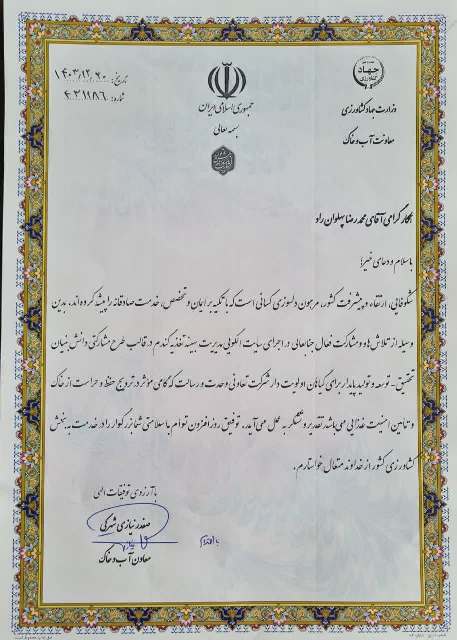 تاریخ: ۱۴۰۳/۱۲/۲۰
شماره: ۴۰۳۱۱۸۶
جمهوری اسلامی ایران
بسمه تعالی
جهاد
وزارت جهاد کشاورزی
معاونت آب و خاک
همکار گرامی آقای محمد رضا پهلوان راد
با سلام و دعای خیر؛
شکوفایی، ارتقاء و پیشرفت کشور، مرهون دلسوزی کسانی است که با تکیه بر ایمان و تخصص، خدمت صادقانه را پیشه کرده‌اند. بدین
وسیله از تلاش‌ها و مشارکت فعال جنابعالی در اجرای سایت الگویی مدیریت بهینه تغذیه گندم در قالب طرح مشارکتی دانش بنیان
تحقیق - توسعه و تولید پایدار برای گیاهان اولویت دار شرکت تعاونی وحدت و رسالت که گامی مؤثر در ترویج حفظ و حراست از خاک
و تامین امنیت غذایی می‌باشد تقدیر و تشکر به عمل می‌آید. توفیق روزافزون توأم با سلامتی شما بزرگوار را در خدمت به بخش
کشاورزی کشور از خداوند متعال خواستارم.
با آرزوی توفیقات الهی
صفدر نیازی شهرکی
معاون آب و خاک